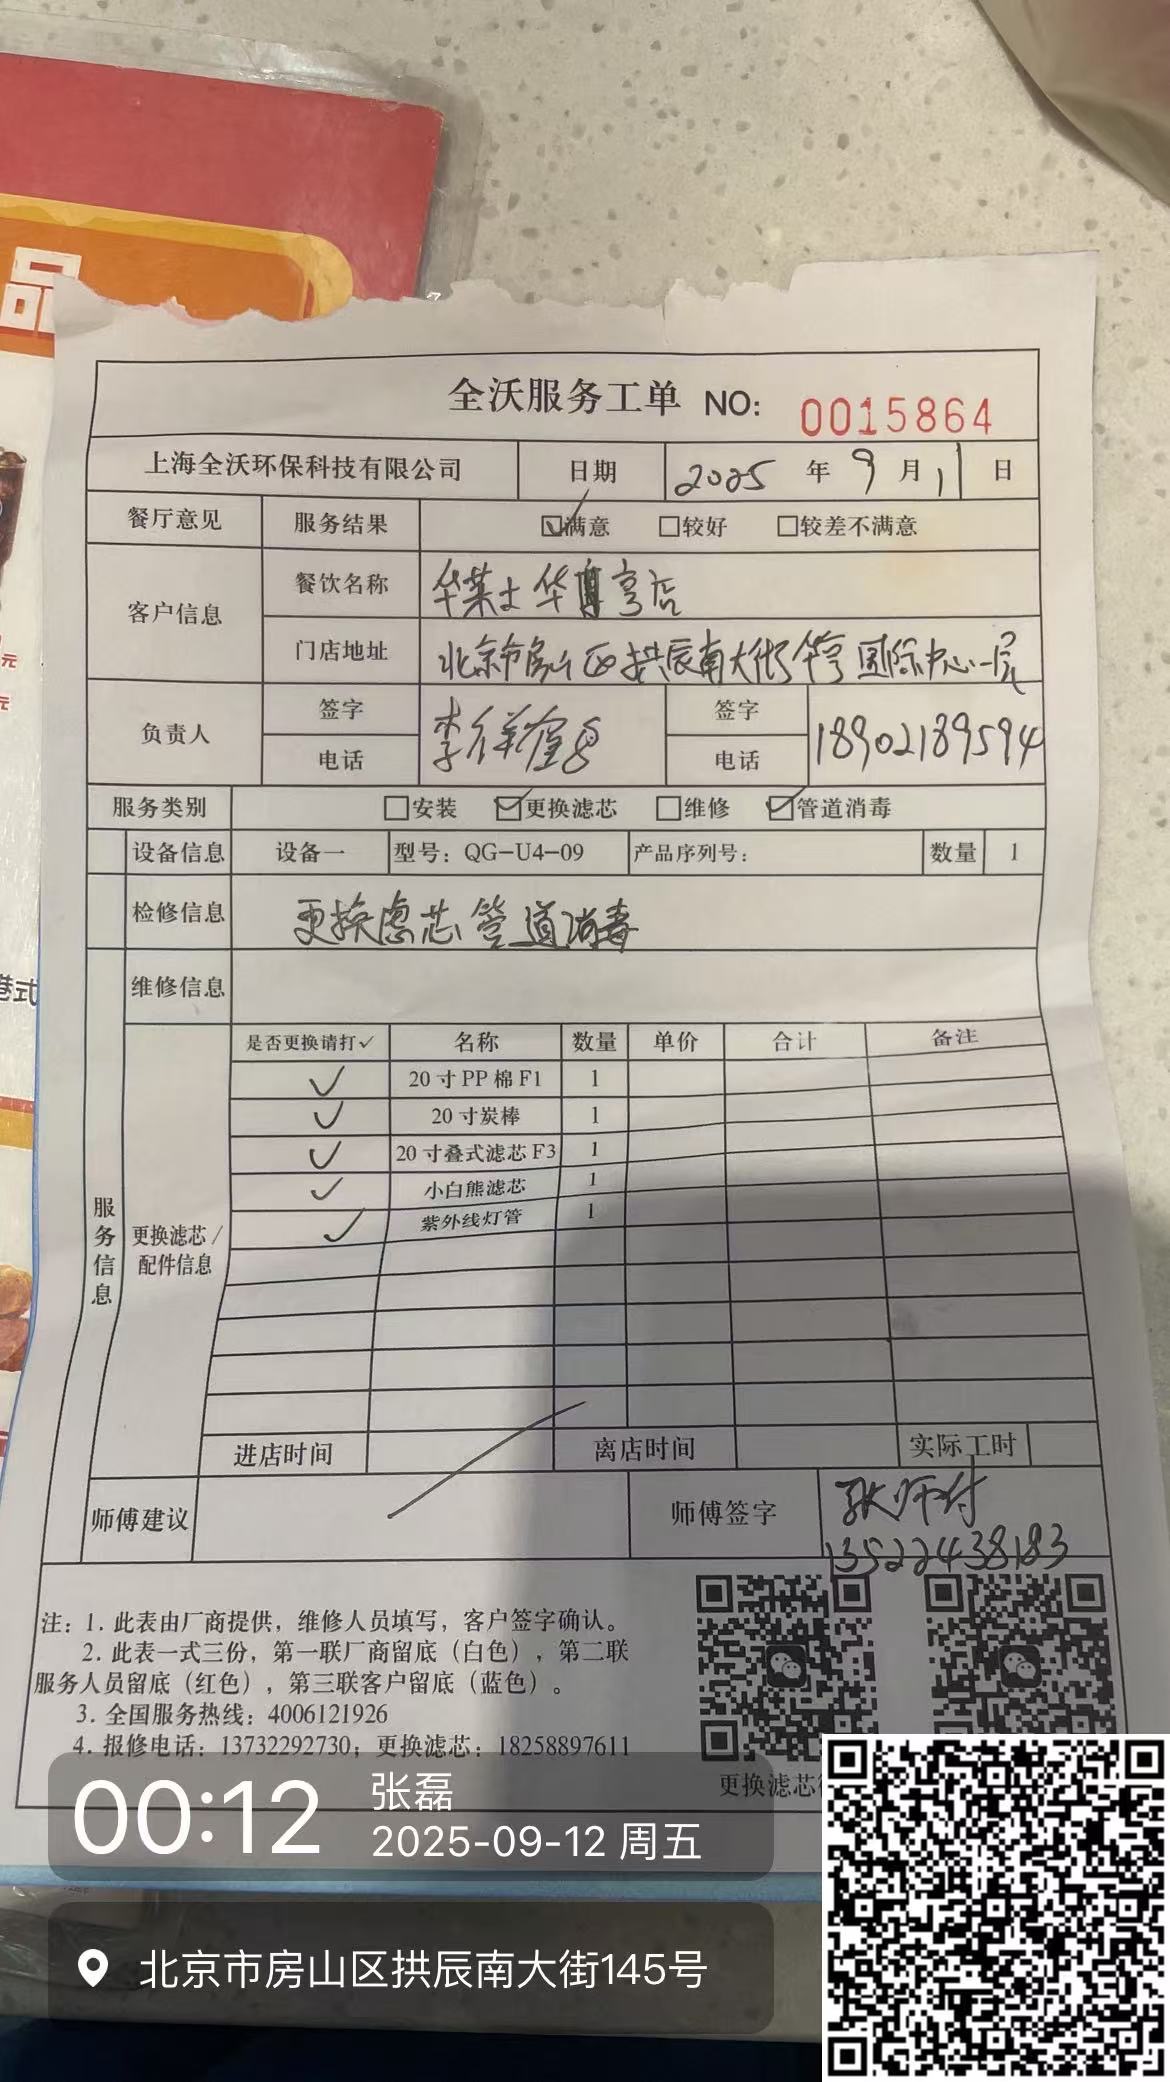 品
元
元
港式
全沃服务工单 NO: 0015864
上海全沃环保科技有限公司 日期 2025 年 9 月 11 日
餐厅意见 服务结果 ☑满意 □较好 □较差不满意
客户信息 餐饮名称 华莱士华亨店
门店地址 北京市房山区拱辰南大街华亨国际中心一层
负责人 签字 签字
电话 电话 18902189594
服务类别 □安装 ☑更换滤芯 □维修 ☑管道消毒
设备信息 设备一 型号：QG-U4-09 产品序列号： 数量 1
检修信息 更换滤芯 管道消毒
维修信息
服务信息
更换滤芯/配件信息
是否更换请打✓ 名称 数量 单价 合计 备注
✓ 20寸PP棉F1 1
✓ 20寸炭棒 1
✓ 20寸叠式滤芯F3 1
✓ 小白熊滤芯 1
✓ 紫外线灯管 1
进店时间 离店时间 实际工时
师傅建议 师傅签字 张师付
13522438183
注：1. 此表由厂商提供，维修人员填写，客户签字确认。
2. 此表一式三份，第一联厂商留底（白色），第二联
服务人员留底（红色），第三联客户留底（蓝色）。
3. 全国服务热线：4006121926
4. 报修电话：13732292730；更换滤芯：18258897611
更换滤芯
00:12 张磊
2025-09-12 周五
北京市房山区拱辰南大街145号